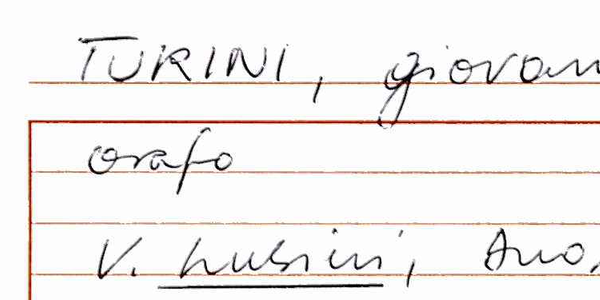 TURINI, giovan
orafo
V. Lusini,